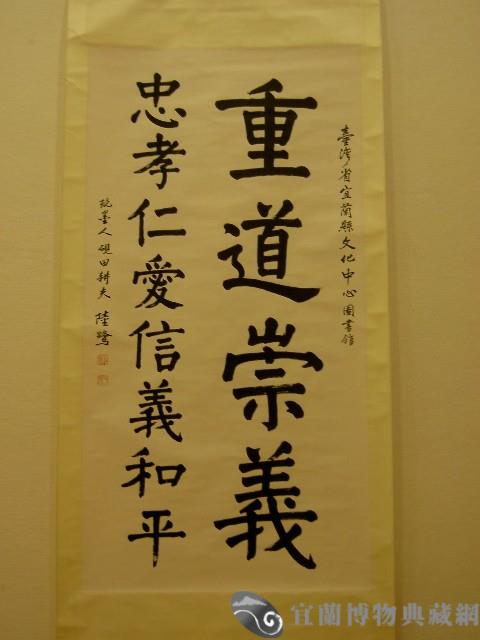 臺灣省宜蘭縣文化中心圖書館
重道崇義
忠孝仁愛信義和平
玩墨人硯田耕夫 陸鷺
宜蘭博物典藏網